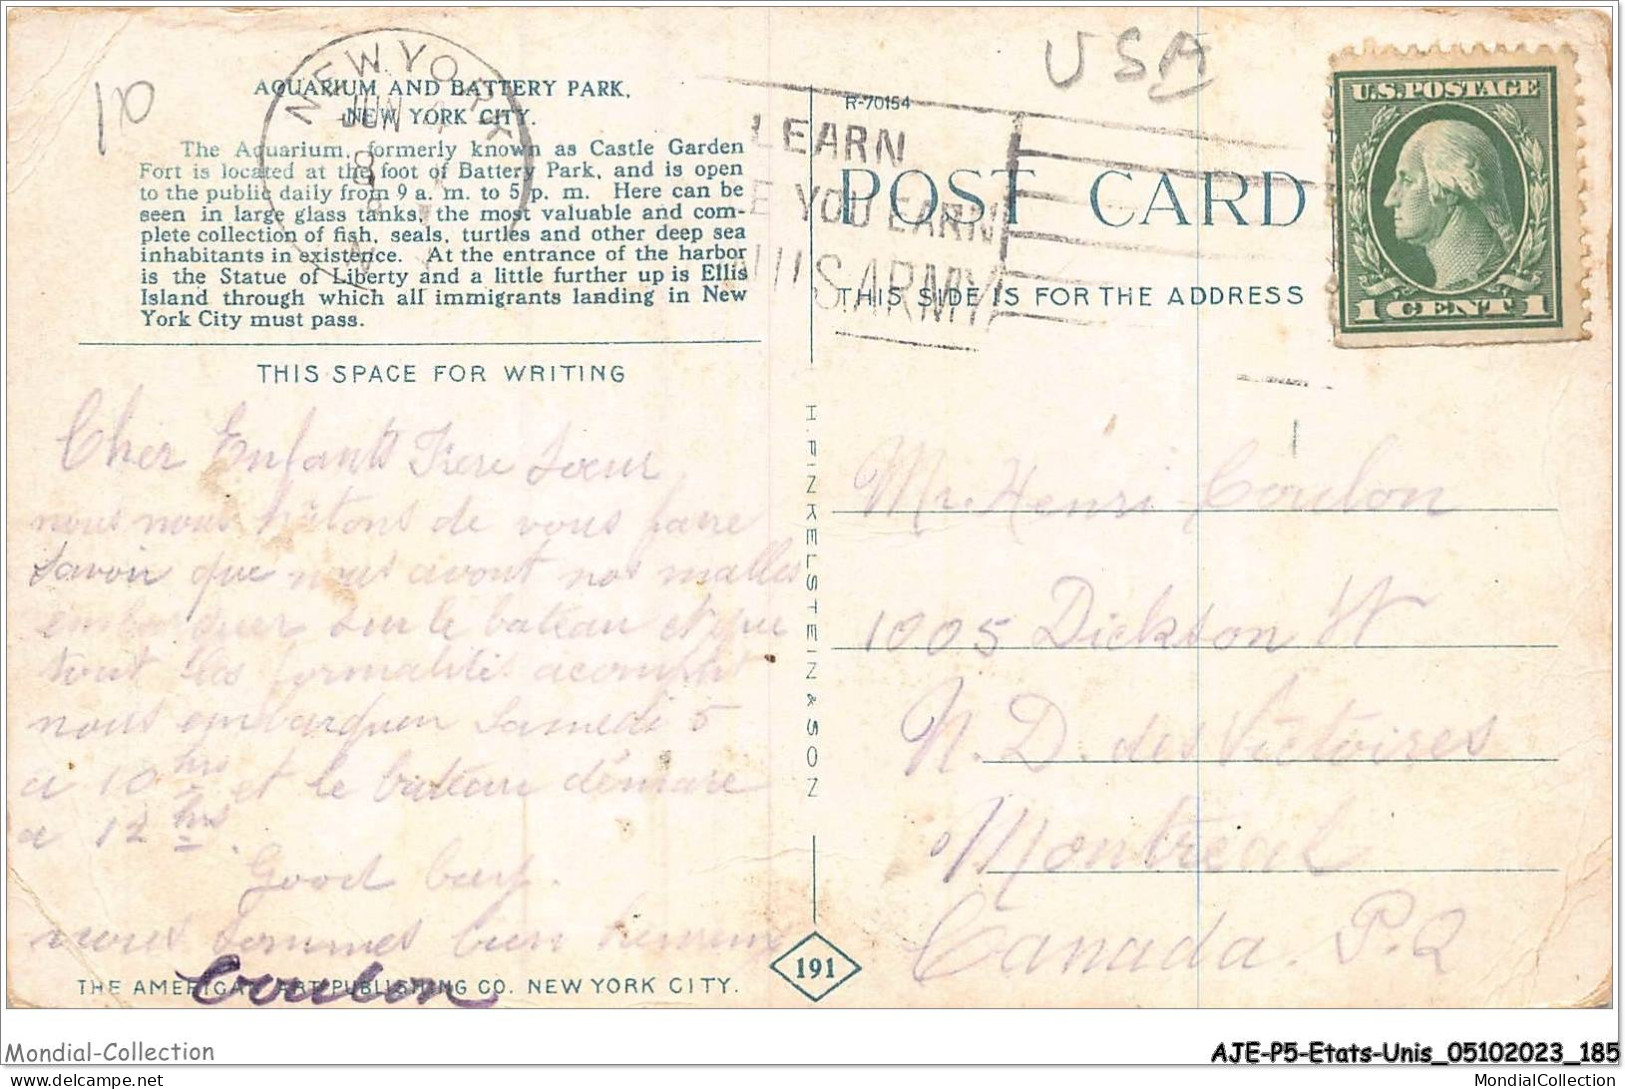 USA
10
NEW YORK
JUN 4
AQUARIUM AND BATTERY PARK,
NEW YORK CITY.
The Aquarium, formerly known as Castle Garden
Fort is located at the foot of Battery Park, and is open
to the public daily from 9 a. m. to 5 p. m. Here can be
seen in large glass tanks, the most valuable and com-
plete collection of fish, seals, turtles and other deep sea
inhabitants in existence. At the entrance of the harbor
is the Statue of Liberty and a little further up is Ellis
Island through which all immigrants landing in New
York City must pass.
THIS SPACE FOR WRITING
Cher Enfants Frere Soeur
nous nous hâtons de vous faire
savoir que nous avont nos malles
embarquer sur le bateau et que
tout les formalités acomplit
nous embarquon Samedi 5
a 10 hrs et le bateau démare
a 12 hrs.
Good bay.
nous sommes bien heureux
Coulon
THE AMERICAN ART PUBLISHING CO. NEW YORK CITY.
H. FINKELSTEIN & SON
191
R-70154
LEARN
E YOU EARN
U.S. ARMY
POST CARD
THIS SIDE IS FOR THE ADDRESS
U.S. POSTAGE
1 CENT 1
Mr. Henri Coulon
1005 Dickson St
N. D. des Victoires
Montreal
Canada. P.Q
Mondial-Collection
AJE-P5-Etats-Unis_05102023_185
delcampe.net
MondialCollection